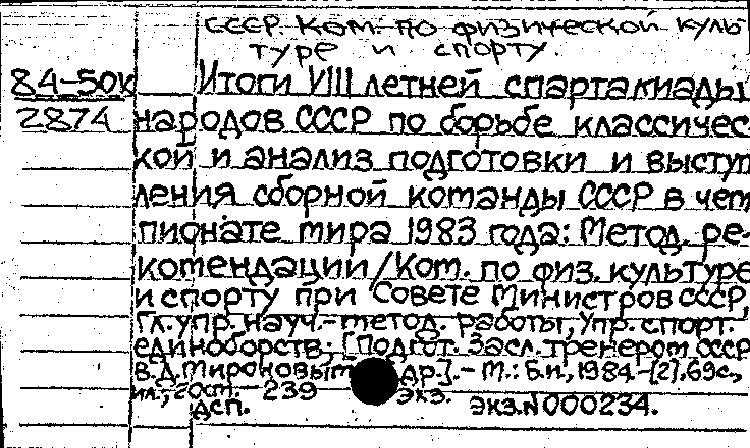 СССР. Ком. по физической куль
туре и спорту.
84-50к Итоги VIII летней спартакиады
2874 народов СССР по борьбе классичес
кой и анализ подготовки и выступ
ления сборной команды СССР в чем
пионате мира 1983 года: Метод. ре-
комендации/Ком. по физ. культуре
и спорту при Совете Министров СССР,
Гл. упр. науч.-метод. работы, Упр. спорт.
единоборств; [Подгот. Засл. тренером СССР
В.Д. Мироновым др.].- М.: Б.и., 1984.-[2], 69с.,
ил.; 239 экз.
ДСП. экз. N 000234.